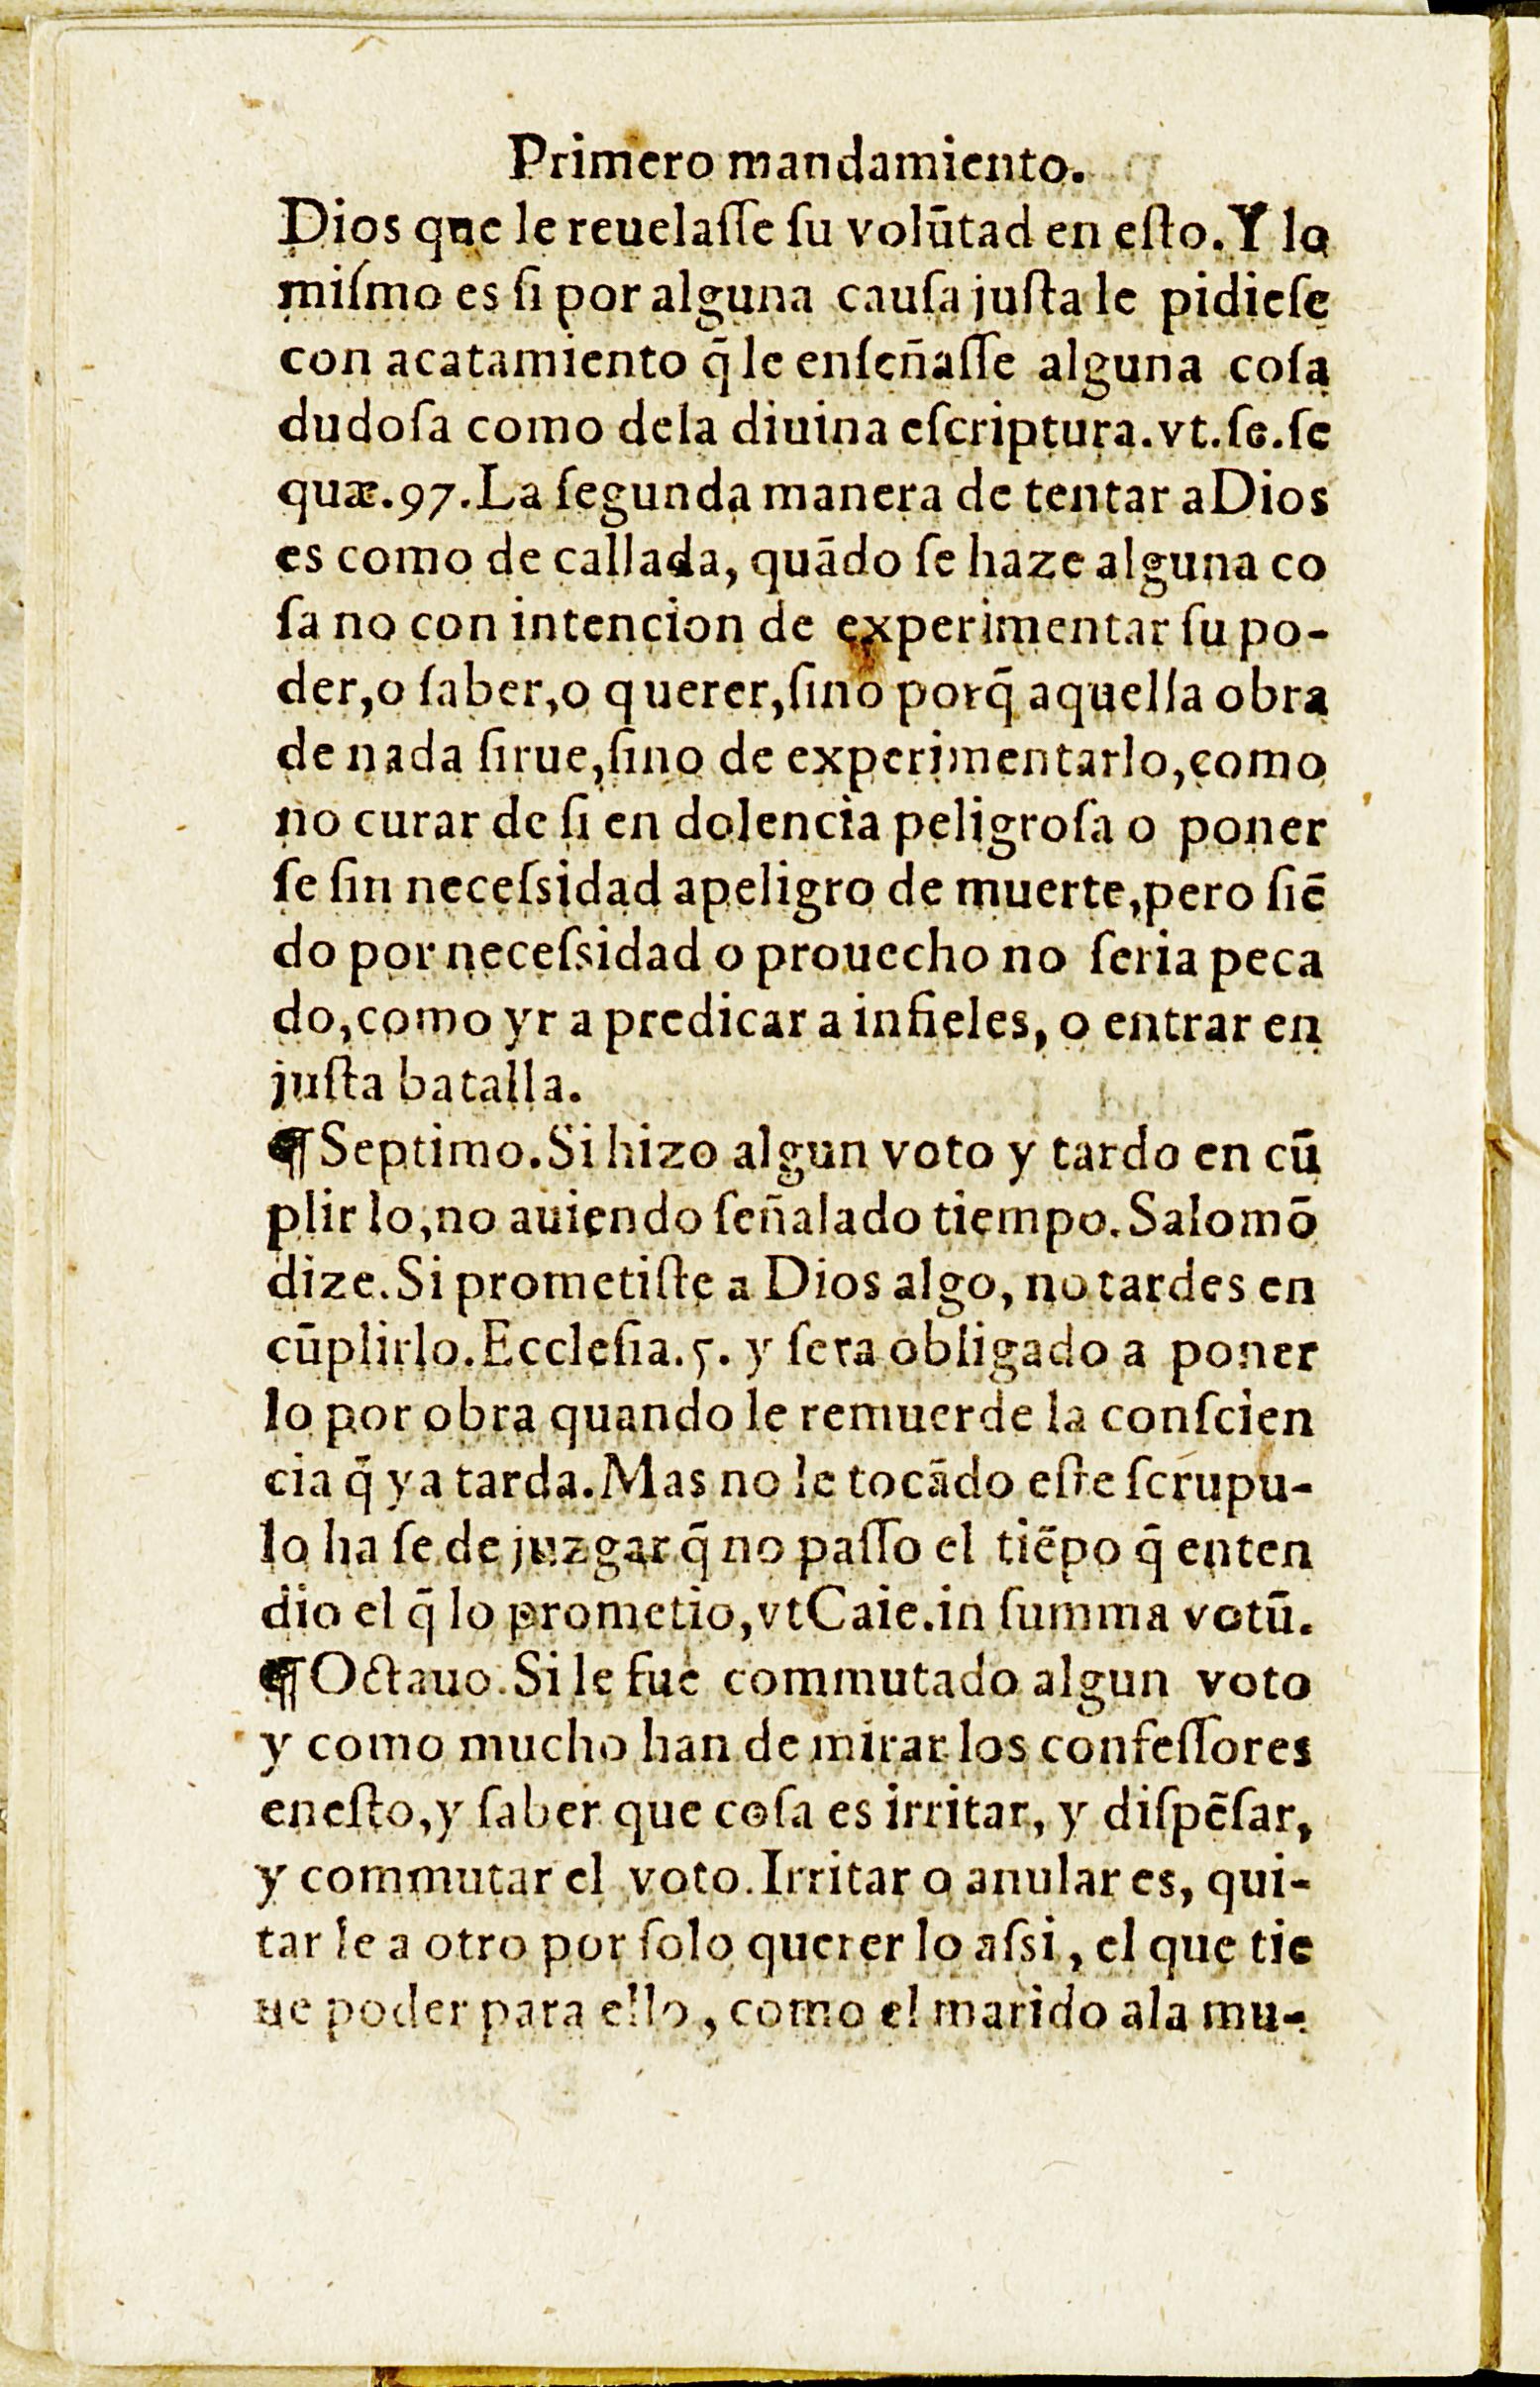 Primero mandamiento.
Dios que le reuelaſſe ſu volūtad en eſto. Y lo
miſmo es ſi por alguna cauſa juſta le pidieſe
con acatamiento q̄ le enſeñaſſe alguna coſa
dudoſa como dela diuina eſcriptura. vt. ſe. ſe
quæ. 97. La ſegunda manera de tentar a Dios
es como de callada, quādo ſe haze alguna co
ſa no con intencion de experimentar ſu po-
der, o ſaber, o querer, ſino porq̄ aquella obra
de nada ſirue, ſino de experimentarlo, como
no curar de ſi en dolencia peligroſa o poner
ſe ſin neceſsidad apeligro de muerte, pero ſiē
do por neceſsidad o prouecho no ſeria peca
do, como yr a predicar a infieles, o entrar en
juſta batalla.
¶ Septimo. Si hizo algun voto y tardo en cū
plir lo, no auiendo ſeñalado tiempo. Salomō
dize. Si prometiſte a Dios algo, no tardes en
cūplirlo. Eccleſia. 5. y ſera obligado a poner
lo por obra quando le remuerde la conſcien
cia q̄ ya tarda. Mas no le tocādo eſte ſcrupu-
lo ha ſe de juzgar q̄ no paſſo el tiēpo q̄ enten
dio el q̄ lo prometio, vt Caie. in ſumma votū.
¶ Octauo. Si le fue commutado algun voto
y como mucho han de mirar los confeſſores
eneſto, y ſaber que coſa es irritar, y diſpēſar,
y commutar el voto. Irritar o anular es, qui-
tar le a otro por ſolo querer lo aſsi, el que tie
ne poder para ello, como el marido ala mu-